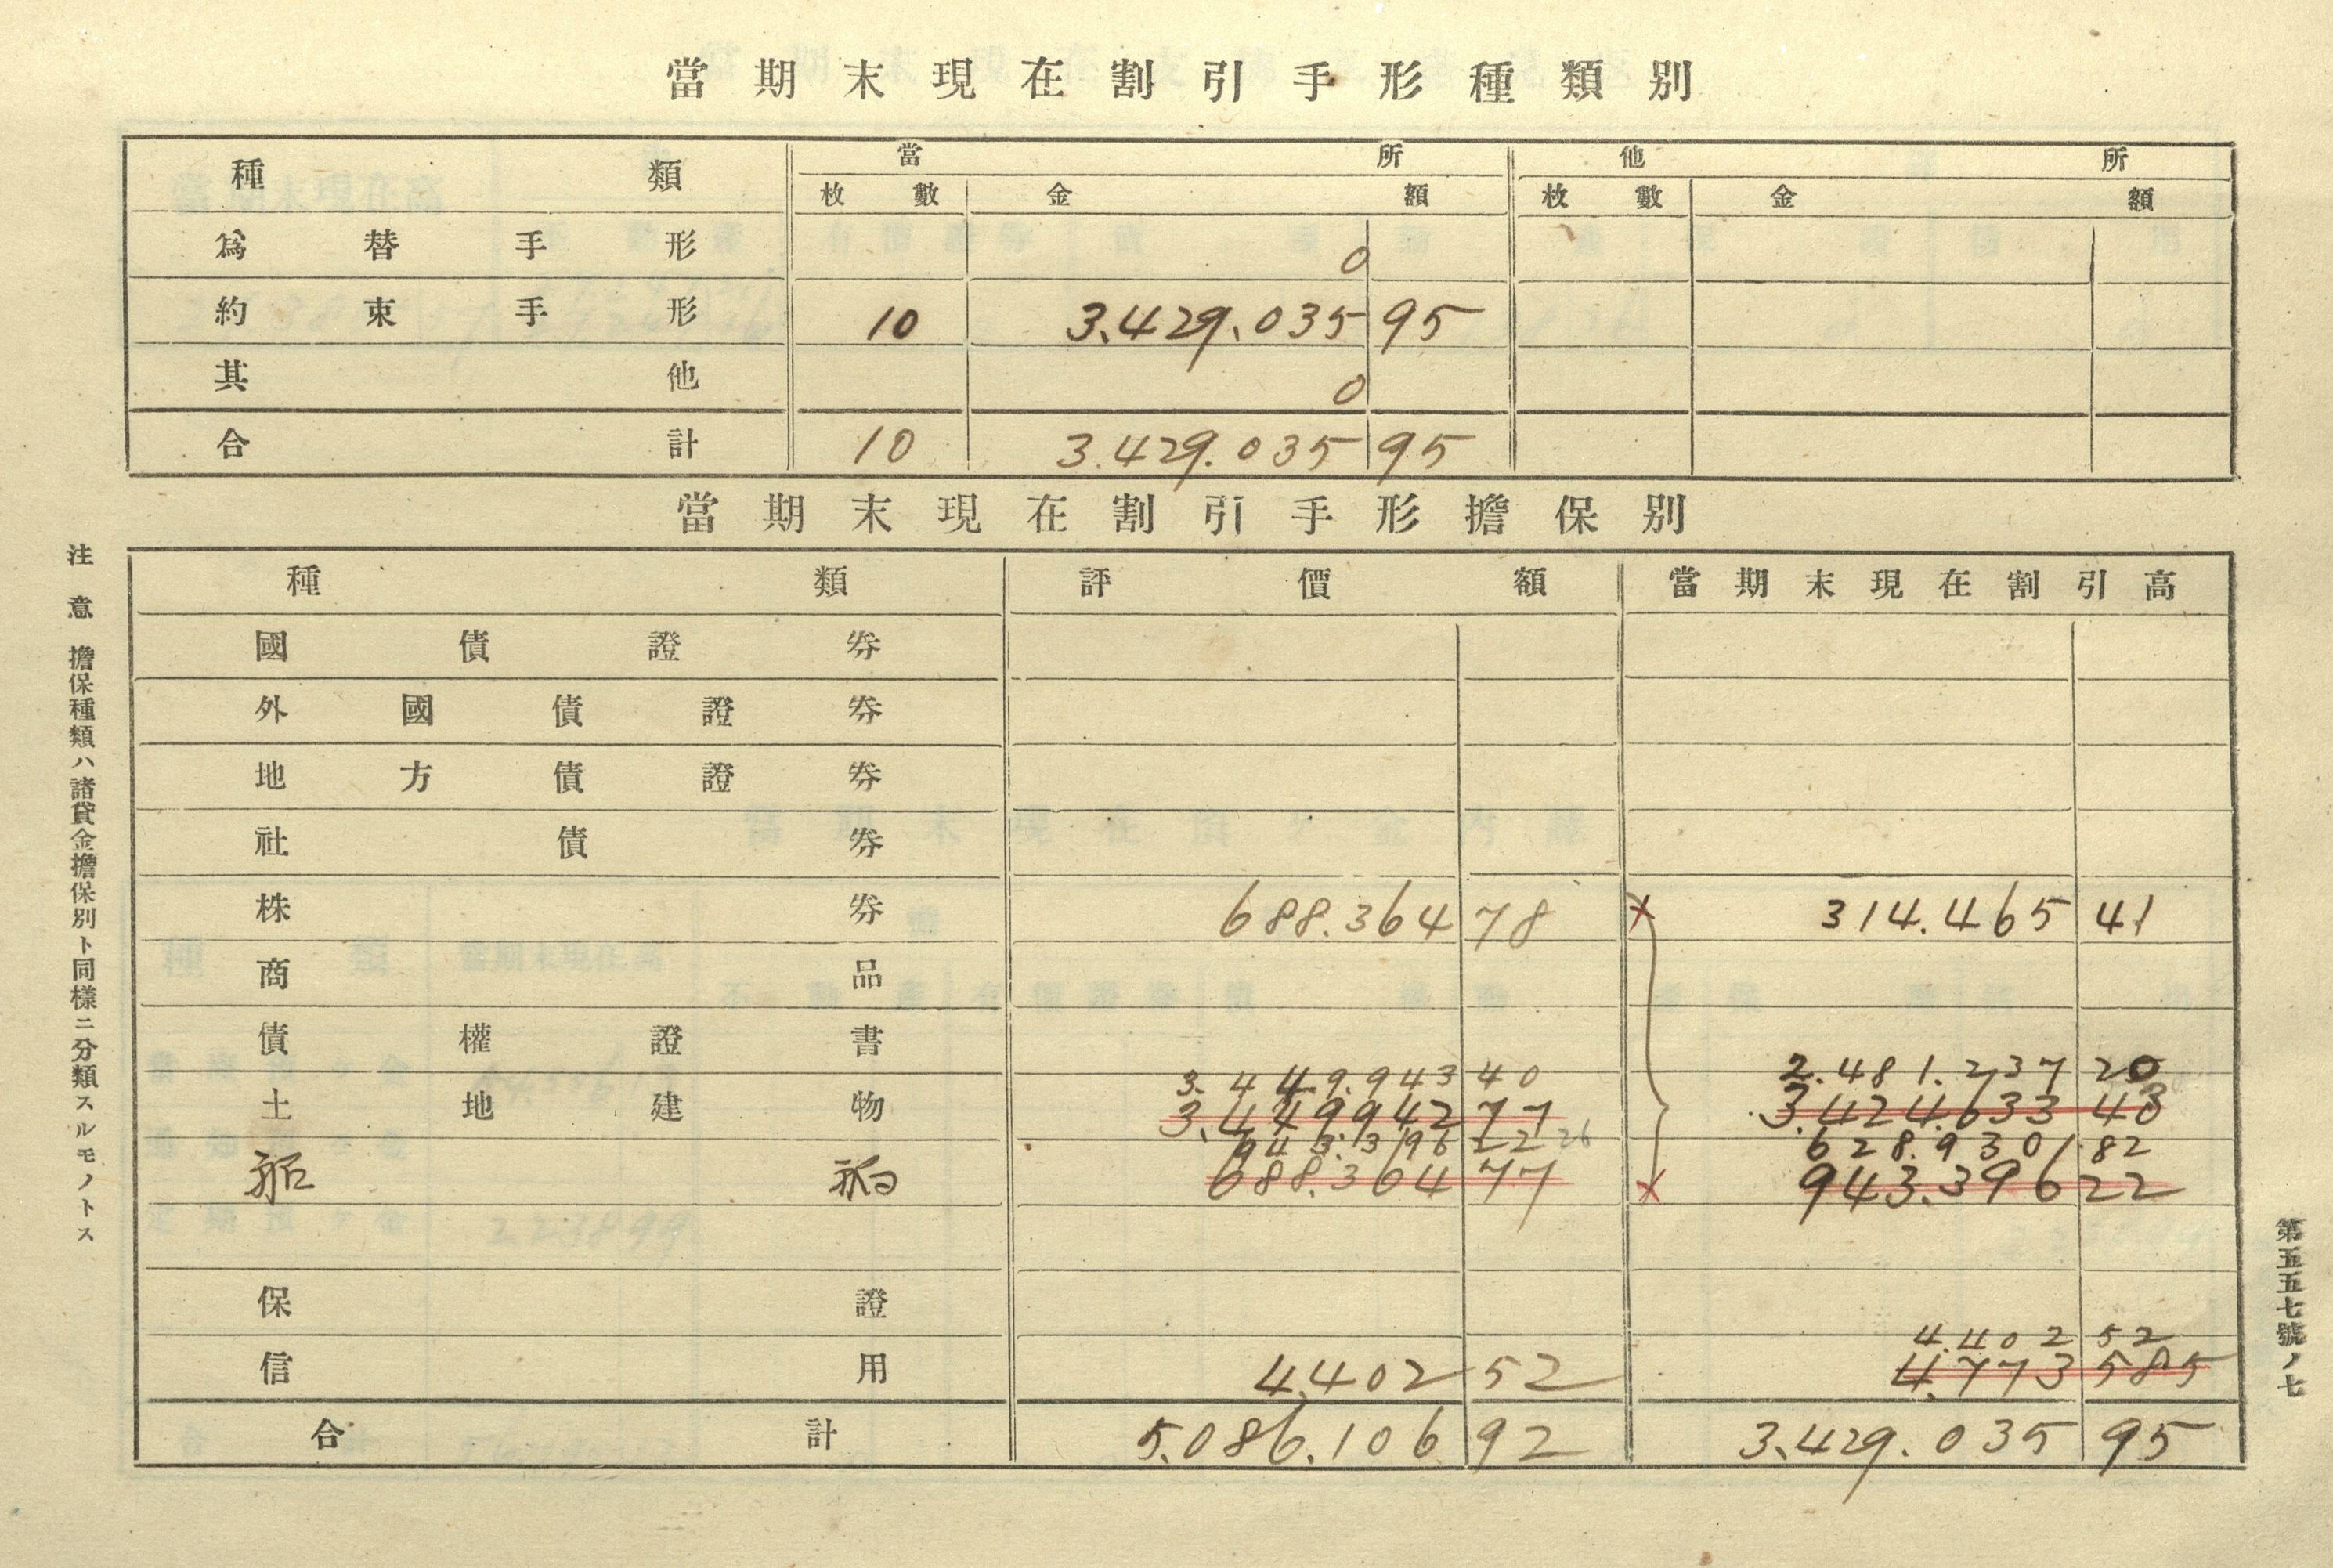 當期末現在割引手形種類別
種類 當所 他所
枚數 金額 枚數 金額
爲替手形 0
約束手形 10 3.429.035 95
其他 0
合計 10 3.429.035 95
當期末現在割引手形擔保別
種類 評價額 當期末現在割引高
國債證券
外國債證券
地方債證券
社債券
株券 688.364 78 × 314.465 41
商品
債權證書
3.449.943 40 2.481.237 20
土地建物 3.449.942 77 3.424.633 43
943.396 22 26 628.930 82
船舶 688.364 77 × 943.396 22
保證
4.402 52
信用 4.402 52 4.773 585
合計 5.086.106 92 3.429.035 95
注意 擔保種類ハ諸貸金擔保別ト同樣ニ分類スルモノトス
第五五七號ノ七